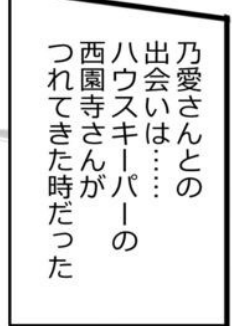 乃愛さんとの
出会いは……
ハウスキーパーの
西園寺さんが
つれてきた時だった